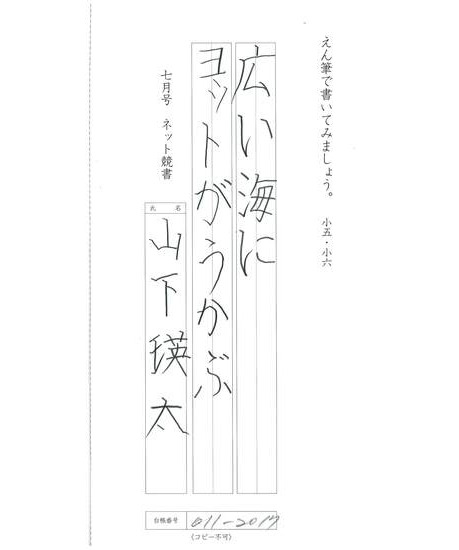 えん筆で書いてみましょう。 小五・小六
広い海に
ヨットがうかぶ
七月号 ネット競書
氏名
山下瑛太
台帳番号 011-2017
(コピー不可)